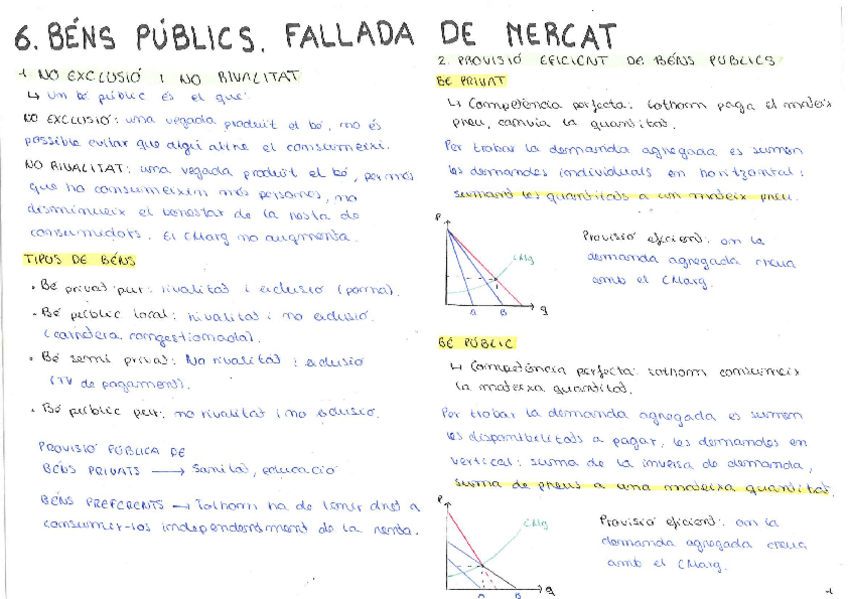 6. BÉNS PÚBLICS. FALLADA DE MERCAT
1 NO EXCLUSIÓ I NO RIVALITAT
↳ Un bé públic és el que:
NO EXCLUSIÓ: una vegada produït el bé, no és
possible evitar que algú altre el consumeixi.
NO RIVALITAT: una vegada produït el bé, per més
que ho consumeixin més persones, no
disminueix el benestar de la resta de
consumidors. El CMarg no augmenta.
TIPUS DE BÉNS
· Bé privat pur: rivalitat i exclusió (poma).
· Bé públic local: rivalitat i no exclusió.
(carretera congestionada).
· Bé semi privat: No rivalitat i exclusió
(TV de pagament).
· Bé públic pur: no rivalitat i no exclusió.
PROVISIÓ PÚBLICA DE
BÉNS PRIVATS → Sanitat, educació
BÉNS PREFERENTS → Tothom ha de tenir dret a
consumir-los independentment de la renta.
2. PROVISIÓ EFICIENT DE BÉNS PÚBLICS
BÉ PRIVAT
↳ Competència perfecta: tothom paga el mateix
preu, canvia la quantitat.
Per trobar la demanda agregada es sumen
les demandes individuals en horitzontal:
sumant les quantitats a un mateix preu.
P
CMg
A B q
Provisió eficient: on la
demanda agregada creua
amb el CMarg.
BÉ PÚBLIC
↳ Competència perfecta: tothom consumeix
la mateixa quantitat.
Per trobar la demanda agregada es sumen
les disponibilitats a pagar, les demandes en
vertical: suma de la inversa de demanda,
suma de preus a una mateixa quantitat.
P
CMg
A B q
Provisió eficient: on la
demanda agregada creua
amb el CMarg.